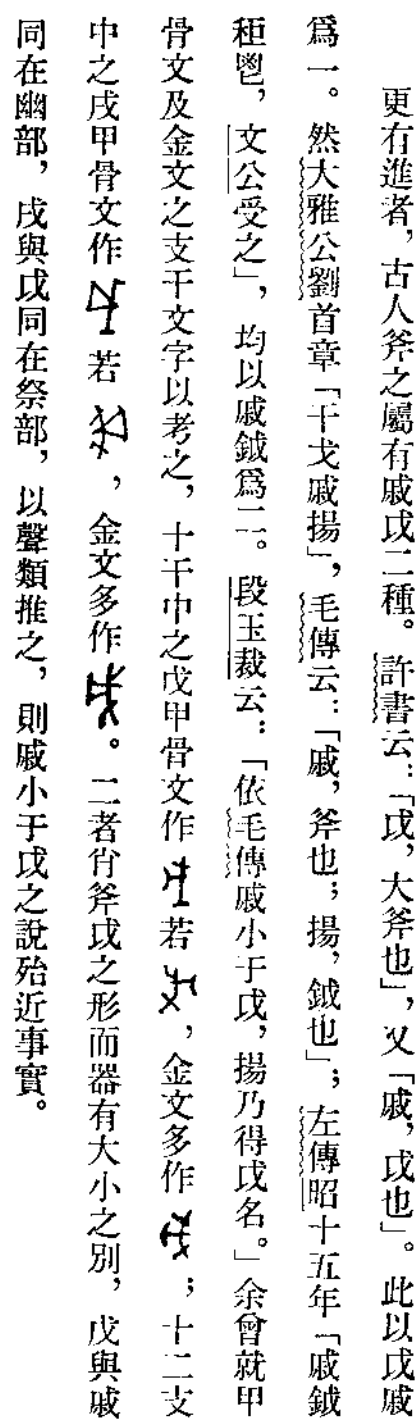 更有進者，古人斧之屬有戚戉二種。許書云：「戉，大斧也」，又「戚，戉也」。此以戉戚
爲一。然大雅公劉首章「干戈戚揚」，毛傳云：「戚，斧也；揚，鉞也」；左傳昭十五年「戚鉞
秬鬯，文公受之」，均以戚鉞爲二。段玉裁云：「依毛傳戚小于戉，揚乃得戉名。」余曾就甲
骨文及金文之支干文字以考之，十干中之戊甲骨文作若，金文多作；十二支
中之戌甲骨文作若，金文多作。二者肖斧戉之形而器有大小之別，戊與戚
同在幽部，戌與戉同在祭部，以聲類推之，則戚小于戉之說殆近事實。